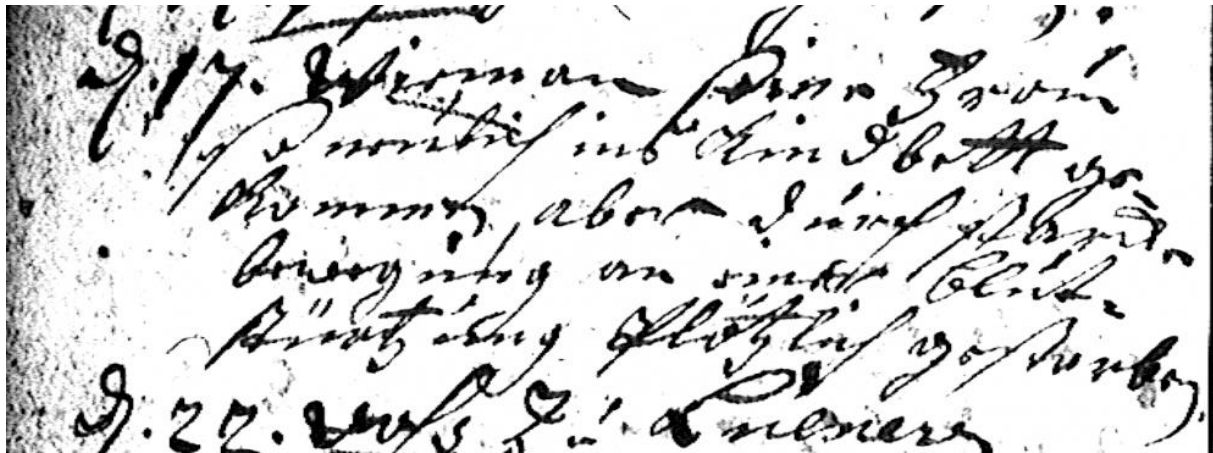 d. 17. Wieman seine Frau
so neulich ins Kindbett ge-
kommen, aber durch starcke
bewegung an einer Blut-
stürtzung plötzlich gestorben.
d. 22. Voss zu